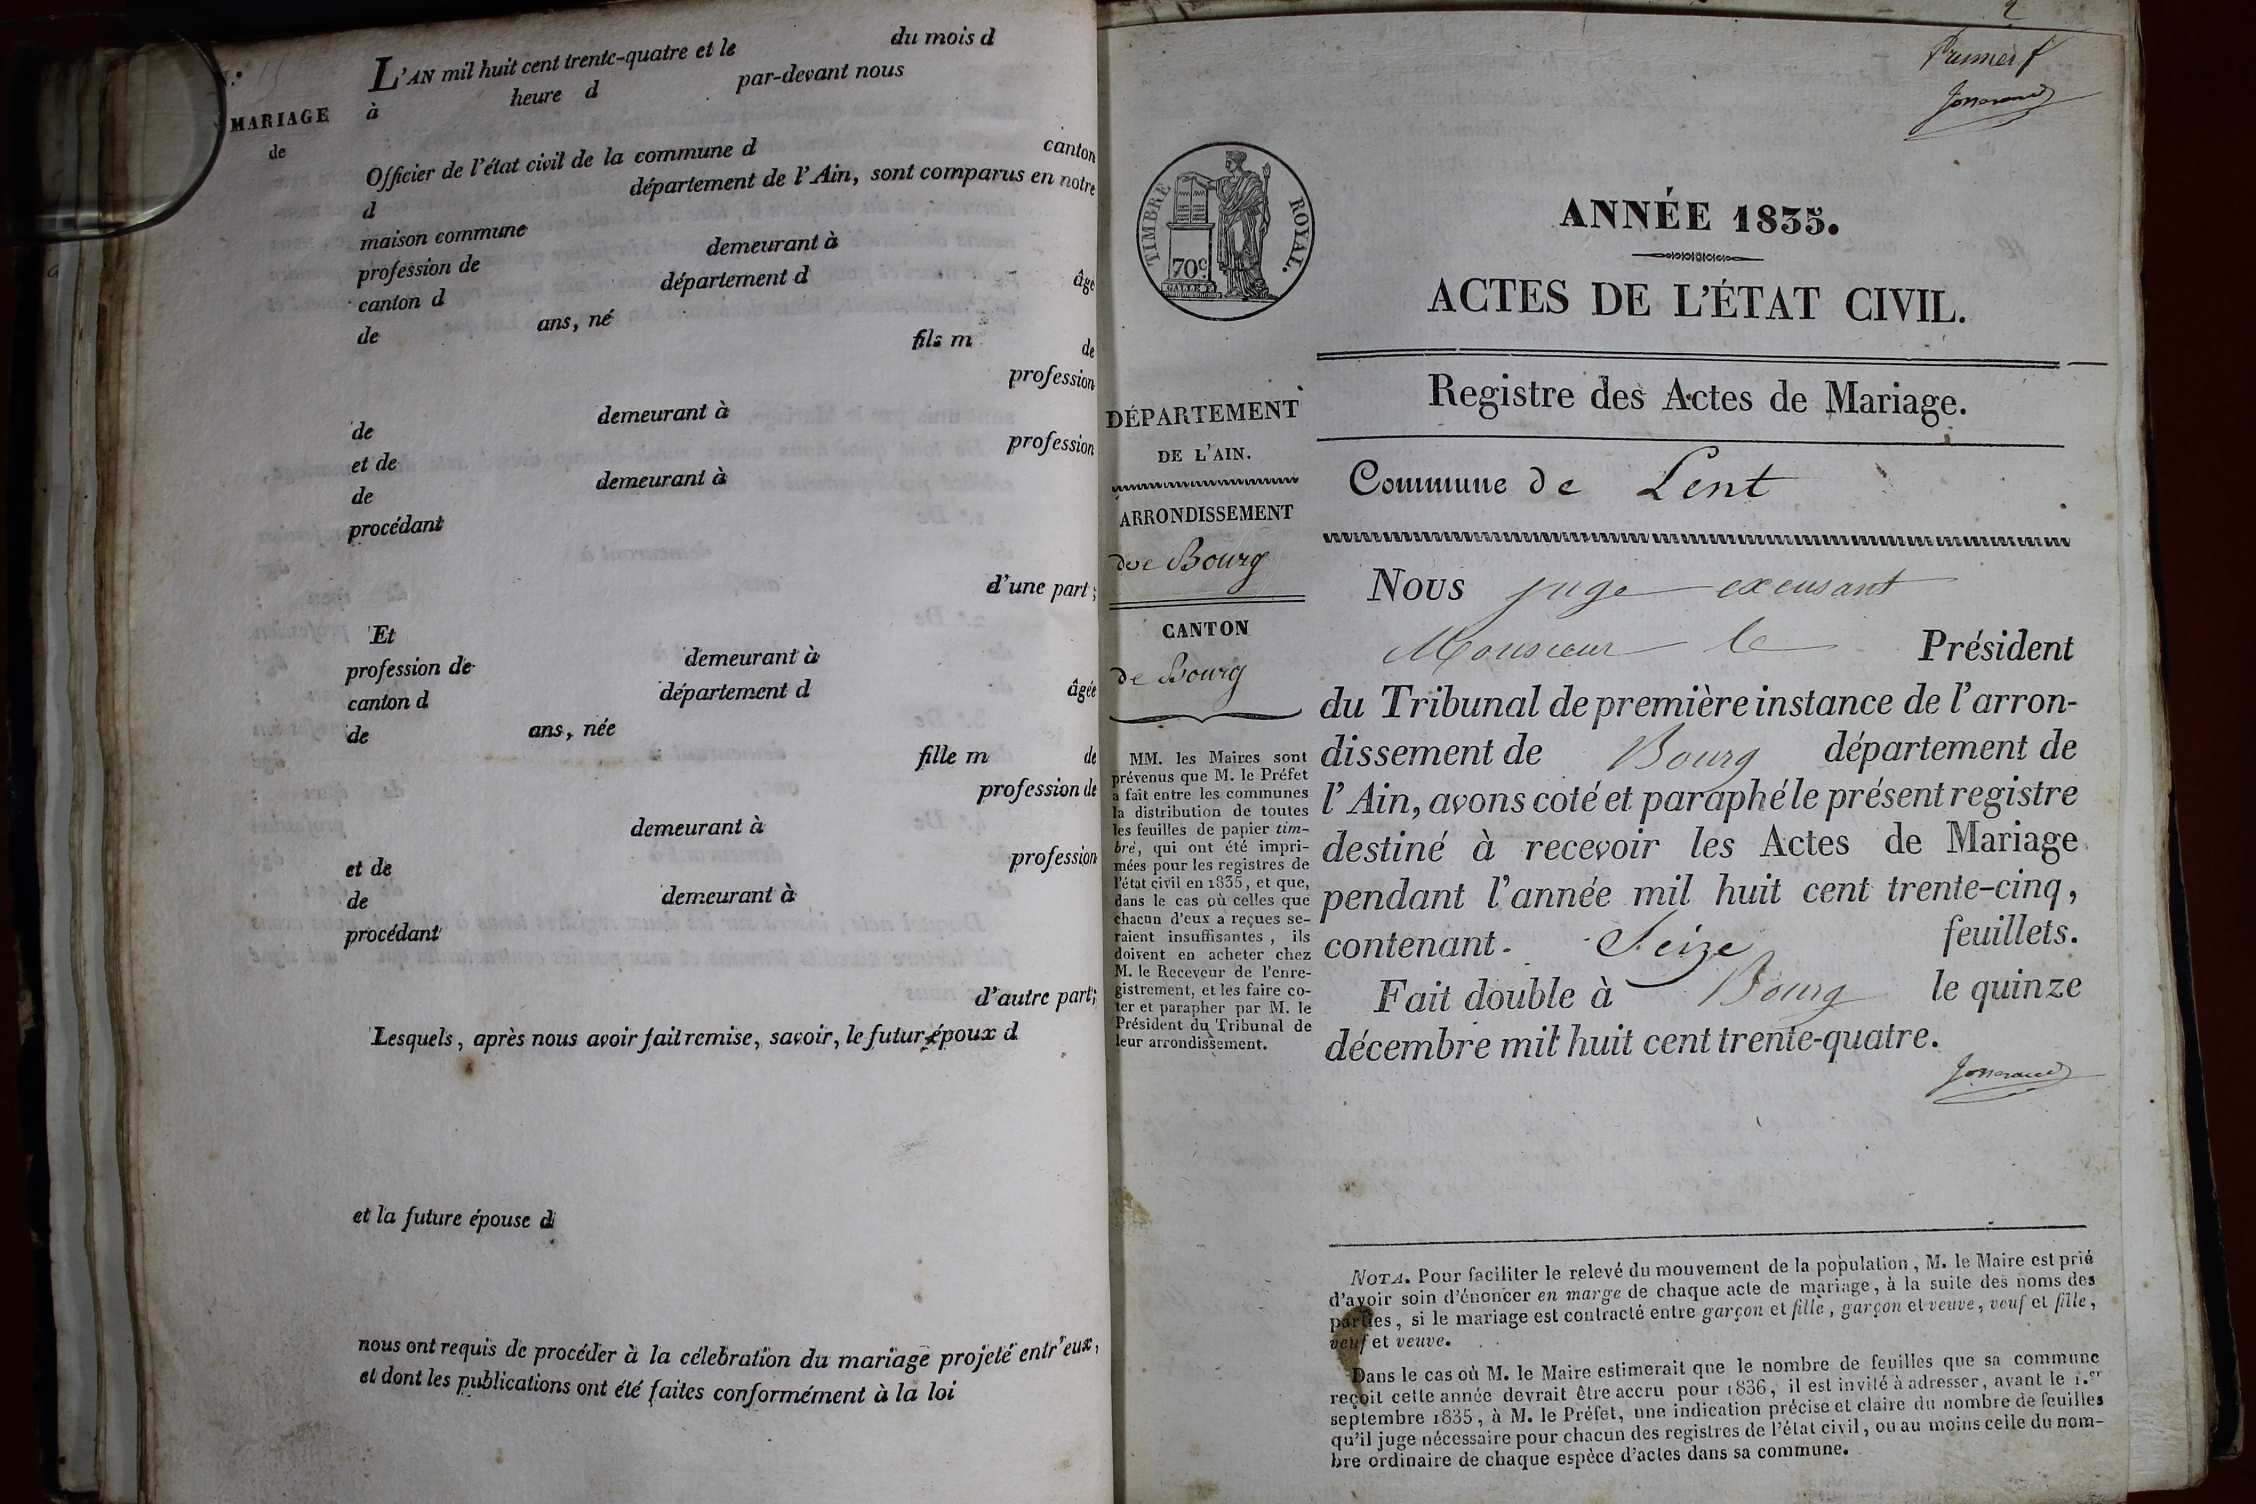 N.º 15
MARIAGE
de
L'AN mil huit cent trente-quatre et le du mois d
à heure d par-devant nous
Officier de l'état civil de la commune d canton
d département de l'Ain, sont comparus en notre
maison commune
profession de demeurant à
canton d département d âgé
de ans, né
fils m de
profession
de demeurant à
et de profession
de demeurant à
procédant
d'une part;
Et
profession de demeurant à
canton d département d âgée
de ans, née
fille m de
profession de
demeurant à
et de profession
de demeurant à
procédant
d'autre part;
Lesquels, après nous avoir fait remise, savoir, le futur époux d
et la future épouse d
nous ont requis de procéder à la célébration du mariage projeté entr'eux,
et dont les publications ont été faites conformément à la loi
2
Premier f
TIMBRE ROYAL.
70c
GALLE F.
DÉPARTEMENT
DE L'AIN.
ARRONDISSEMENT
de Bourg
CANTON
de Bourg
MM. les Maires sont
prévenus que M. le Préfet
a fait entre les communes
la distribution de toutes
les feuilles de papier tim-
bré, qui ont été impri-
mées pour les registres de
l'état civil en 1835, et que,
dans le cas où celles que
chacun d'eux a reçues se-
raient insuffisantes, ils
doivent en acheter chez
M. le Receveur de l'enre-
gistrement, et les faire co-
ter et parapher par M. le
Président du Tribunal de
leur arrondissement.
ANNÉE 1835.
ACTES DE L'ÉTAT CIVIL.
Registre des Actes de Mariage.
Commune de Lent
Nous juge excusant
Monsieur le Président
du Tribunal de première instance de l'arron-
dissement de Bourg département de
l'Ain, avons coté et paraphé le présent registre
destiné à recevoir les Actes de Mariage
pendant l'année mil huit cent trente-cinq,
contenant Seize feuillets.
Fait double à Bourg le quinze
décembre mil huit cent trente-quatre.
NOTA. Pour faciliter le relevé du mouvement de la population, M. le Maire est prié
d'avoir soin d'énoncer en marge de chaque acte de mariage, à la suite des noms des
parties, si le mariage est contracté entre garçon et fille, garçon et veuve, veuf et fille,
veuf et veuve.
Dans le cas où M. le Maire estimerait que le nombre de feuilles que sa commune
reçoit cette année devrait être accru pour 1836, il est invité à adresser, avant le 1.er
septembre 1835, à M. le Préfet, une indication précise et claire du nombre de feuilles
qu'il juge nécessaire pour chacun des registres de l'état civil, ou au moins celle du nom-
bre ordinaire de chaque espèce d'actes dans sa commune.